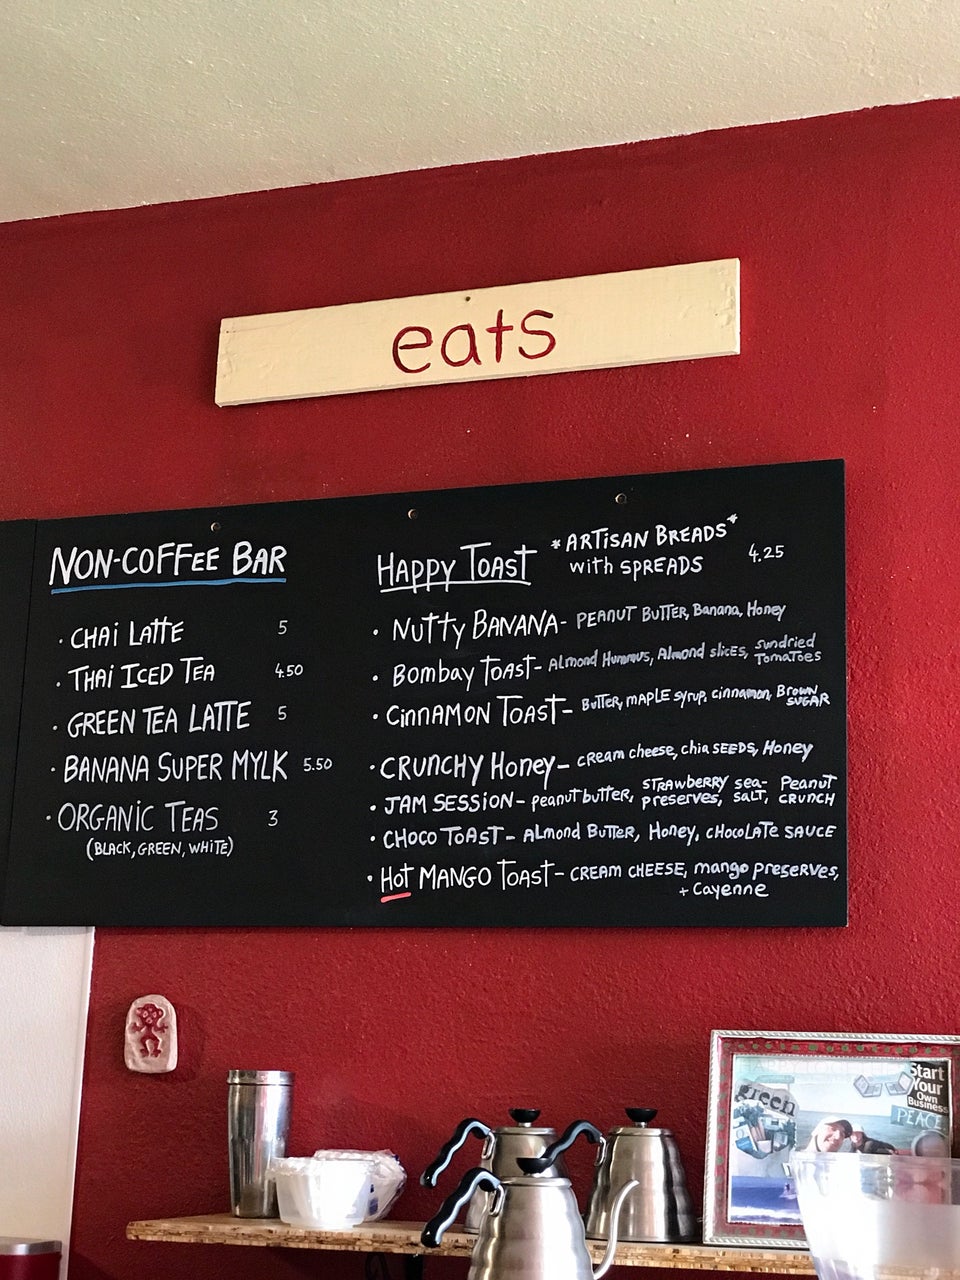 eats
NON-COFFEE BAR
· CHAi LATTE 5
· THAi ICED TEA 4.50
· GREEN TEA LATTE 5
· BANANA SUPER MYLK 5.50
· ORGANIC TEAS 3
(BLACK, GREEN, WHiTE)
HAPPY TOAST
*ARTiSAN BREADS*
with SPREADS
4.25
· NUTTY BANANA- PEANUT BUTTER, Banana, Honey
· Bombay TOAST- Almond Hummus, Almond slices, sundried
TomaToes
· CinnAMON TOAST- BuTTer, mAPLE syrup, cinnamon, Brown
SUGAR
· CRUNCHY Honey- cream cheese, chia SEEDS, Honey
· JAM SESSION- peanut butter, STRAWBERRY preserves, sea-SALT, Peanut CRUNCH
· CHOCO TOAST- ALmond BuTTer, Honey, cHocoLATe sAUCE
· Hot MANGO TOAST- CREAM CHEESE, mango preserves,
+ Cayenne
green
Start
Your
Own
Business
PEACE